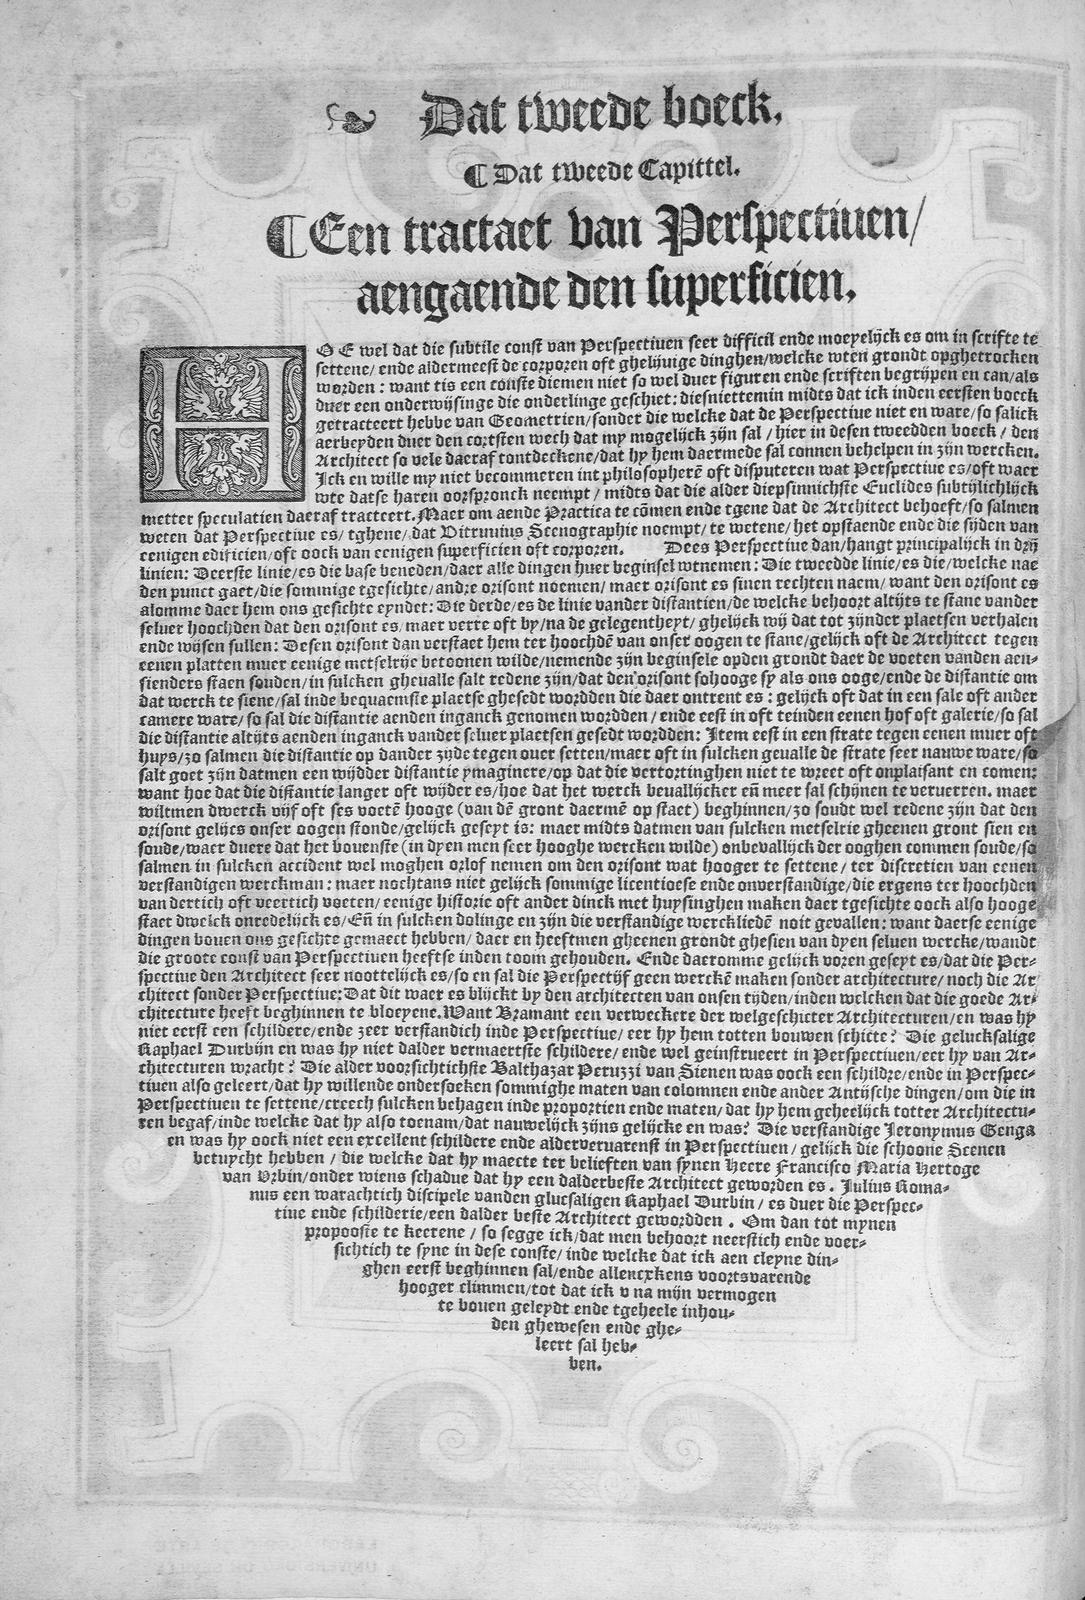 Dat tweede boeck.
¶ Dat tweede Capittel.
¶ Een tractaet van Perspectiuen/
aengaende den superficien.
HOE wel dat die subtile const van Perspectiuen seer difficil ende moeyelijck es om in scrifte te
settene/ ende aldermeest de corporen oft ghelijuige dinghen/welcke wten grondt opghetrocken
worden: want tis een conste diemen niet so wel duer figuren ende scriften begrijpen en can/als
duer een onderwijsinge die onderlinge geschiet: diesniettemin midts dat ick inden eersten boeck
getracteert hebbe van Geometrien/sonder die welcke dat de Perspectiue niet en ware/so salick
aerbeyden duer den cortsten wech dat my mogelijck zijn sal / hier in desen tweedden boeck / den
Architect so vele daeraf tontdeckene/dat hy hem daermede sal connen behelpen in zijn wercken.
Ick en wille my niet becommeren int philosopherē oft disputeren wat Perspectiue es/oft waer
wte datse haren oorspronck neempt / midts dat die alder diepsinnichste Euclides subtijlichlijck
metter speculatien daeraf tracteert. Maer om aende Practica te cōmen ende tgene dat de Architect behoeft/so salmen
weten dat Perspectiue es/ tghene/ dat Vitruuius Scenographie noempt/ te wetene/ het opstaende ende die sijden van
eenigen edificien/oft oock van eenigen superficien oft corporen. Dees Perspectiue dan/hangt principalijck in drij
linien: Deerste linie/es die base beneden/daer alle dingen huer beginsel wtnemen: Die tweedde linie/es die/welcke nae
den punct gaet/die sommige tgesichte/andre orisont noemen/ maer orisont es sinen rechten naem/ want den orisont es
alomme daer hem ons gesichte eyndet: Die derde/es de linie vander distantien/de welcke behoort altijts te stane vander
seluer hoochden dat den orisont es/ maer verre oft by/na de gelegentheyt/ ghelijck wij dat tot zijnder plaetsen verhalen
ende wijsen sullen: Desen orisont dan verstaet hem ter hoochdē van onser oogen te stane/gelijck oft de Architect tegen
eenen platten muer eenige metselrije betoonen wilde/nemende zijn beginsele opden grondt daer de voeten vanden aen-
sienders staen souden/in sulcken gheualle salt redene zijn/dat den orisont sohooge sy als ons ooge/ende de distantie om
dat werck te siene/sal inde bequaemste plaetse ghesedt wordden die daer ontrent es: gelijck oft dat in een sale oft ander
camere ware/so sal die distantie aenden inganck genomen wordden / ende eest in oft teinden eenen hof oft galerie/so sal
die distantie altijts aenden inganck vander seluer plaetsen gesedt wordden: Item eest in een strate tegen eenen muer oft
huys/zo salmen die distantie op dander zijde tegen ouer setten/maer oft in sulcken geualle de strate seer nauwe ware/so
salt goet zijn datmen een wijdder distantie ymaginere/op dat die vertortinghen niet te wreet oft onplaisant en comen:
want hoe dat die distantie langer oft wijder es/hoe dat het werck beuallijcker eñ meer sal schijnen te veruerren. maer
wiltmen dwerck vijf oft ses voetē hooge (van dē gront daermē op staet) beghinnen/zo soudt wel redene zijn dat den
orisont gelijcs onser oogen stonde/gelijck geseyt is: maer midts datmen van sulcken metselrie gheenen gront sien en
soude/waer duere dat het bouenste (in dyen men seer hooghe wercken wilde) onbevallijck der ooghen commen soude/so
salmen in sulcken accident wel moghen orlof nemen om den orisont wat hooger te settene/ ter discretien van eenen
verstandigen werckman: maer nochtans niet gelijck sommige licentioese ende onverstandige/die ergens ter hoochden
van dertich oft veertich voeten/ eenige historie oft ander dinck met huysinghen maken daer tgesichte oock also hooge
staet dwelck onredelijck es/Eñ in sulcken dolinge en zijn die verstandige wercklidē noit gevallen: want daerse eenige
dingen bouen ons gesichte gemaect hebben/ daer en heeftmen gheenen grondt ghesien van dyen seluen wercke/wandt
die groote const van Perspectiuen heeftse inden toom gehouden. Ende daeromme gelijck voren geseyt es/dat die Per-
spectiue den Architect seer noottelijck es/so en sal die Perspectijf geen werckē maken sonder architecture/noch die Ar
chitect sonder Perspectiue: Dat dit waer es blijckt by den architecten van onsen tijden/inden welcken dat die goede Ar-
chitecture heeft beghinnen te bloeyene. Want Bramant een verweckere der welgeschicter Architecturen/en was hy
niet eerst een schildere/ende zeer verstandich inde Perspectiue/ eer hy hem totten bouwen schicte? Die gelucksalige
Raphael Durbijn en was hy niet dalder vermaertste schildere/ ende wel geinstrueert in Perspectiuen/eer hy van Ar-
chitecturen wracht? Die alder voorsichtichste Balthazar Peruzzi van Sienen was oock een schildre/ende in Perspec-
tiuen also geleert/dat hy willende ondersoeken sommighe maten van colomnen ende ander Antijsche dingen/om die in
Perspectiuen te settene/creech sulcken behagen inde proportien ende maten/dat hy hem geheelijck totter Architectu-
ren begaf/inde welcke dat hy also toenam/dat nauwelijck zijns gelijcke en was? Die verstandige Jeronymus Genga
en was hy oock niet een excellent schildere ende aldervervarenst in Perspectiuen/ gelijck die schoone Scenen
betuycht hebben / die welcke dat hy maecte ter belieften van synen Heere Francisco Maria Hertoge
van Vrbin/onder wiens schadue dat hy een dalderbeste Architect geworden es. Julius Roma-
nus een warachtich discipele vanden glucsaligen Raphael Durbin/ es duer die Perspec-
tiue ende schilderie/een dalder beste Architect gewordden. Om dan tot mynen
propooste te keerene / so segge ick/dat men behoort neerstich ende voer-
sichtich te syne in dese conste/ inde welcke dat ick aen cleyne din-
ghen eerst beghinnen sal/ende allencxkens voortsvarende
hooger climmen/tot dat ick v na mijn vermogen
te bouen geleydt ende tgeheele inhou-
den ghewesen ende ghe-
leert sal heb-
ben.